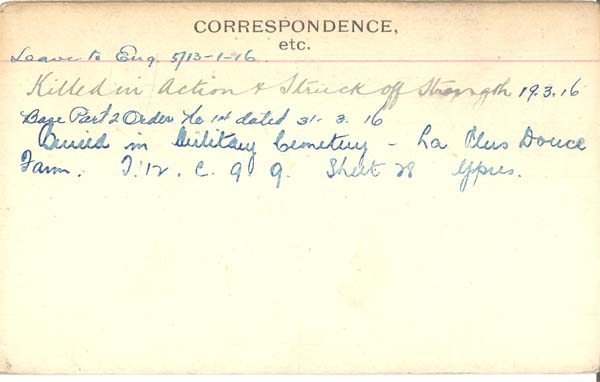 CORRESPONDENCE,
etc.
Leave to Eng. 5/13-1-16.
Killed in Action & Struck off Strength 19.3.16
Base Part 2 Order No 14 dated 31-3.16
Buried in Military Cemetery - La Plus Douce
Farm. T.12.C. 9 9. Sheet 28 Ypres.